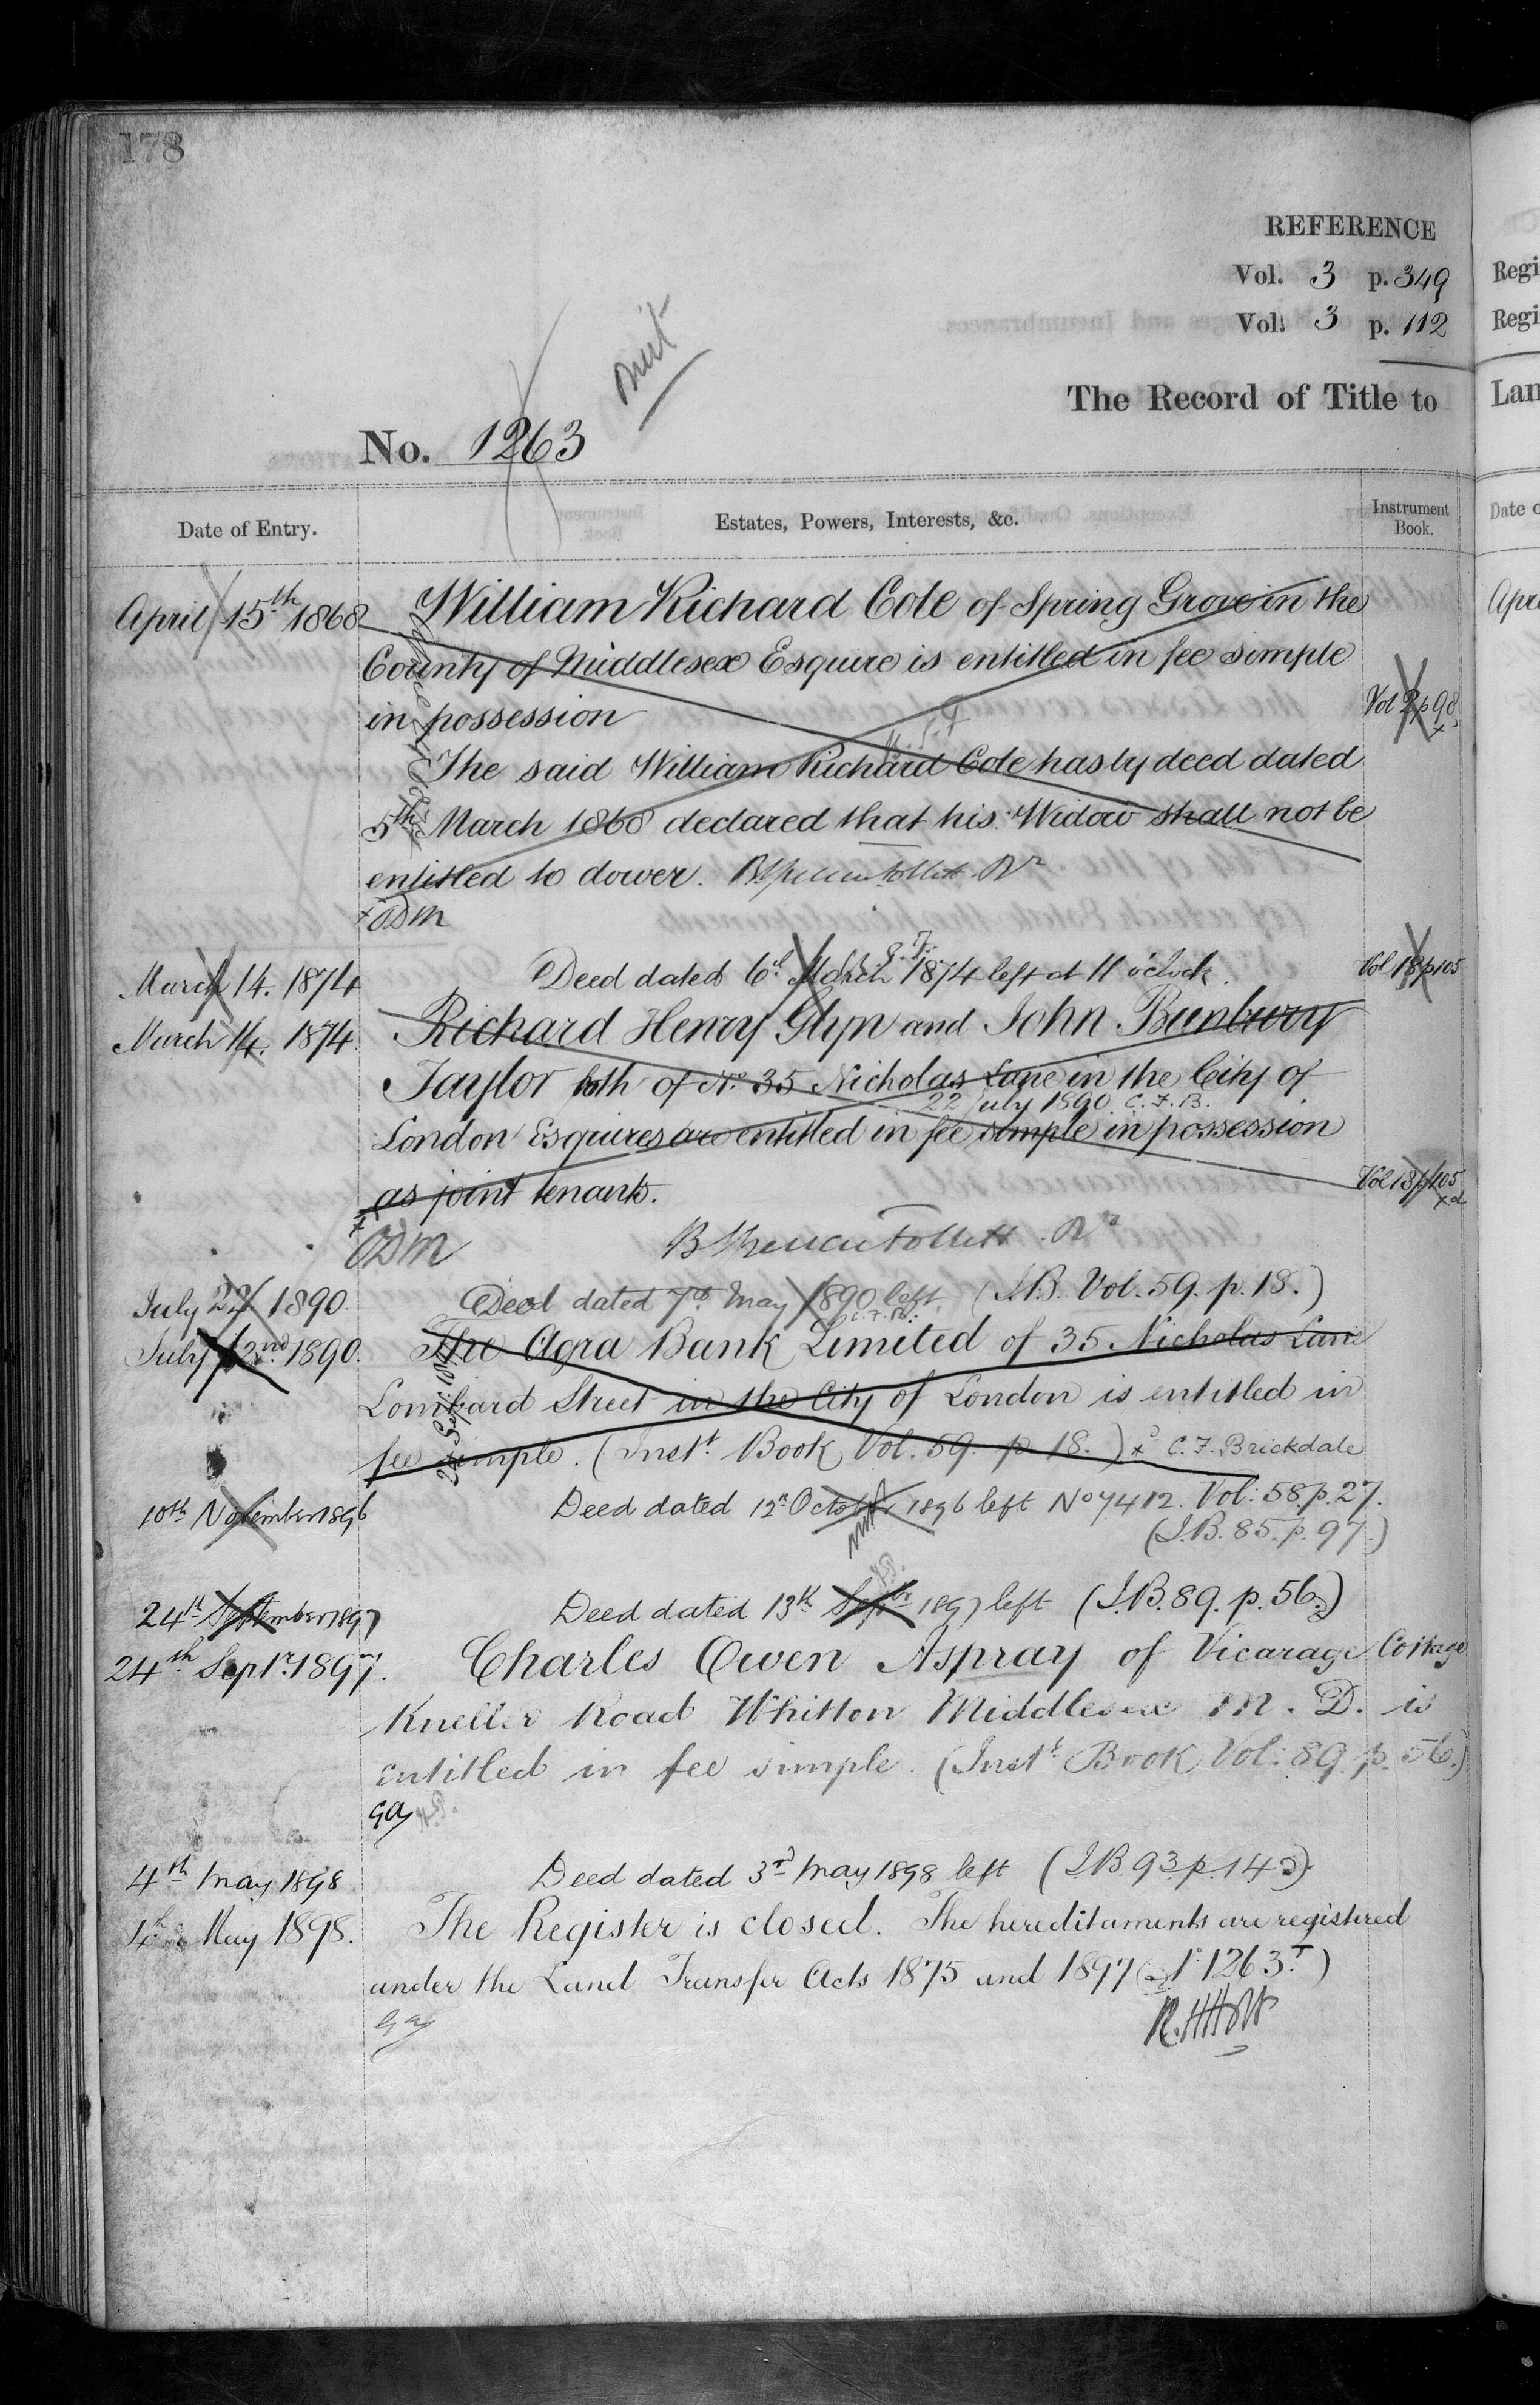 178
REFERENCE
Vol. 3 p. 349
Vol. 3 p. 112
The Record of Title to
No. 1263
Date of Entry.
Estates, Powers, Interests, &c.
Instrument
Book.
April 15th 1868
William Richard Cole of Spring Grove in the
County of Middlesex Esquire is entitled in fee simple
in possession
Vol 2 p 98
The said William Richard Cole has by deed dated
5th March 1868 declared that his Widow shall not be
entitled to dower. Rr
ODM
March 14. 1874
Deed dated 6th March 1874 left at 11 o'clock.
Vol 18 p 105
March 14. 1874
Richard Henry Glyn and John Bunbury
Taylor both of No. 35 Nicholas Lane in the City of
22 July 1890 C.F.B.
London Esquires are entitled in fee simple in possession
as joint tenants.
Vol 18 p 105
ODM
Rr
July 22 1890.
Deed dated 7th May 1890 left. (I.B. Vol. 59. p. 18.)
C.F.B.
July 22nd 1890.
The Agra Bank Limited of 35 Nicholas Lane
Lombard Street in the City of London is entitled in
fee simple. (Instt. Book Vol. 59. p 18.) C.F. Brickdale
10th November 1896
Deed dated 12th October 1896 left No 7412. Vol: 58 p. 27.
(I.B. 85. p. 97.)
24th September 1897
Deed dated 13th Septbr 1897 left (I.B. 89. p. 56.)
24th Septr. 1897.
Charles Owen Aspray of Vicarage Cottage
Kneller Road Whitton Middlesex M. D. is
entitled in fee simple. (Instt Book Vol: 89. p. 56.)
4th May 1898
Deed dated 3rd May 1898 left (I.B. 93. p. 142)
4th May 1898.
The Register is closed. The hereditaments are registered
under the Land Transfer Acts 1875 and 1897 (No 1263T)
Regi
Regi
Lan
Date o
Apr